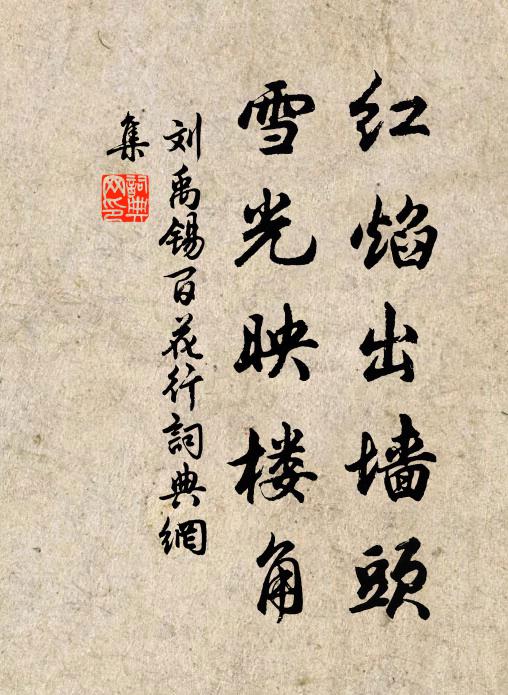 红焰出墙头
雪光映楼角
刘禹锡百花行詞典網
集
詞典网印